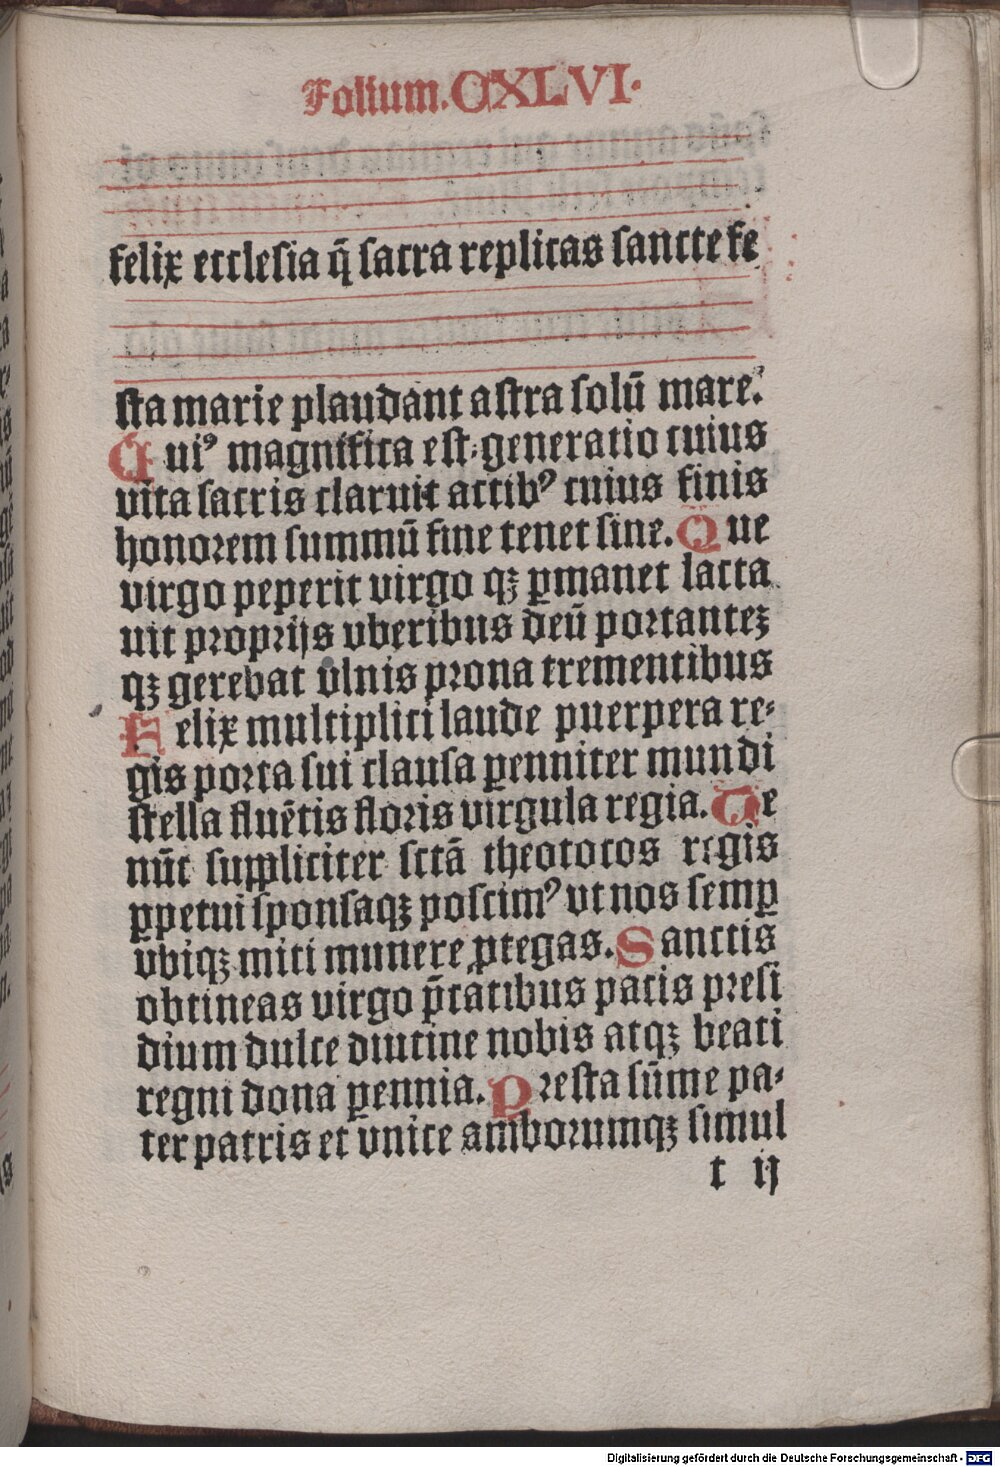 Folium.CXLVI.
felix ecclesia q̄ sacra replicas sancte fe
sta marie plaudant astra solū mare.
Cuiꝰ magnifica est generatio cuius
vita sacris claruit actibꝰ cuius finis
honorem summū fine tenet sine. Que
virgo peperit virgo qꝫ ꝑmanet lacta
uit proprijs vberibus deū portanteꝫ
qꝫ gerebat vlnis prona trementibus
Felix multiplici laude puerpera re-
gis porta sui clausa ꝑenniter mundi
stella fluētis floris virgula regia. Te
nūc suppliciter sctā theotocos regis
ꝑpetui sponsaqꝫ poscimꝰ vt nos semꝑ
vbiqꝫ miti munere ꝓtegas. Sanctis
obtineas virgo p̄catibus pacis presi
dium dulce diutine nobis atqꝫ beati
regni dona ꝑennia. Presta sūme pa-
ter patris et vnice amborumqꝫ simul
t ij
Digitalisierung gefördert durch die Deutsche Forschungsgemeinschaft - DFG